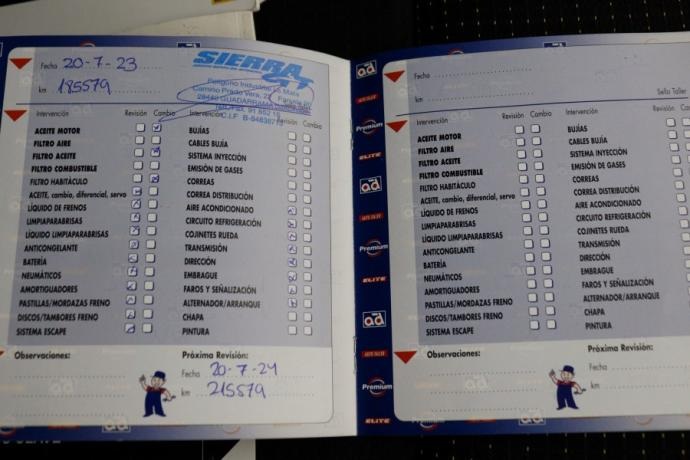 Fecha 20-7-23
km 185579
SIERRA
Polígono Industrial La Mata
Camino Prado Vera, 22
28440 GUADARRAMA
Intervención Revisión Cambio
ACEITE MOTOR
FILTRO AIRE
FILTRO ACEITE
FILTRO COMBUSTIBLE
FILTRO HABITÁCULO
ACEITE, cambio, diferencial, servo
LÍQUIDO DE FRENOS
LIMPIAPARABRISAS
LÍQUIDO LIMPIAPARABRISAS
ANTICONGELANTE
BATERÍA
NEUMÁTICOS
AMORTIGUADORES
PASTILLAS/MORDAZAS FRENO
DISCOS/TAMBORES FRENO
SISTEMA ESCAPE
Intervención Revisión Cambio
BUJÍAS
CABLES BUJÍA
SISTEMA INYECCIÓN
EMISIÓN DE GASES
CORREAS
CORREA DISTRIBUCIÓN
AIRE ACONDICIONADO
CIRCUITO REFRIGERACIÓN
COJINETES RUEDA
TRANSMISIÓN
DIRECCIÓN
EMBRAGUE
FAROS Y SEÑALIZACIÓN
ALTERNADOR/ARRANQUE
CHAPA
PINTURA
Observaciones:
Próxima Revisión:
Fecha 20-7-24
km 215579
ad
Premium
ELITE
ad
Premium
ELITE
ad
Premium
ELITE
Fecha
km
Sello Taller
Intervención Revisión Cambio
ACEITE MOTOR
FILTRO AIRE
FILTRO ACEITE
FILTRO COMBUSTIBLE
FILTRO HABITÁCULO
ACEITE, cambio, diferencial, servo
LÍQUIDO DE FRENOS
LIMPIAPARABRISAS
LÍQUIDO LIMPIAPARABRISAS
ANTICONGELANTE
BATERÍA
NEUMÁTICOS
AMORTIGUADORES
PASTILLAS/MORDAZAS FRENO
DISCOS/TAMBORES FRENO
SISTEMA ESCAPE
Intervención Revisión Cambio
BUJÍAS
CABLES BUJÍA
SISTEMA INYECCIÓN
EMISIÓN DE GASES
CORREAS
CORREA DISTRIBUCIÓN
AIRE ACONDICIONADO
CIRCUITO REFRIGERACIÓN
COJINETES RUEDA
TRANSMISIÓN
DIRECCIÓN
EMBRAGUE
FAROS Y SEÑALIZACIÓN
ALTERNADOR/ARRANQUE
CHAPA
PINTURA
Observaciones:
Próxima Revisión:
Fecha
km